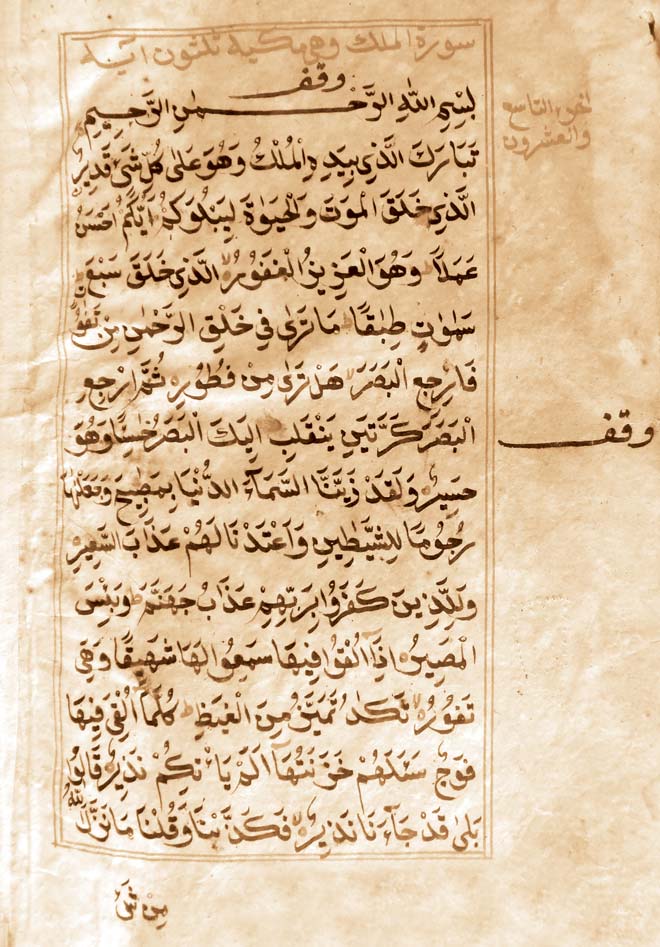 سورة الملك وهي مكية ثلثون آية
وقف
بِسْمِ اللهِ الرَّحْمٰنِ الرَّحِيمِ
الجزء التاسع
والعشرون
تَبَارَكَ الَّذِي بِيَدِهِ الْمُلْكُ وَهُوَ عَلىٰ كُلِّ شَيْءٍ قَدِيرٌ
الَّذِي خَلَقَ الْمَوْتَ وَالْحَيٰوةَ لِيَبْلُوَكُمْ اَيُّكُمْ اَحْسَنُ
عَمَلًا وَهُوَ الْعَزِيزُ الْغَفُورُ الَّذِي خَلَقَ سَبْعَ
سَمٰوٰتٍ طِبَاقًا مَا تَرٰى فِي خَلْقِ الرَّحْمٰنِ مِنْ تَفٰوُتٍ
فَارْجِعِ الْبَصَرَ هَلْ تَرٰى مِنْ فُطُورٍ ثُمَّ ارْجِعِ
الْبَصَرَ كَرَّتَيْنِ يَنْقَلِبْ اِلَيْكَ الْبَصَرُ خَاسِئًا وَهُوَ
وقف
حَسِيرٌ وَلَقَدْ زَيَّنَّا السَّمَآءَ الدُّنْيَا بِمَصٰبِيحَ وَجَعَلْنٰهَا
رُجُومًا لِلشَّيٰطِينِ وَاَعْتَدْنَا لَهُمْ عَذَابَ السَّعِيرِ
وَلِلَّذِينَ كَفَرُوا بِرَبِّهِمْ عَذَابُ جَهَنَّمَ وَبِئْسَ
الْمَصِيرُ اِذَآ اُلْقُوا فِيهَا سَمِعُوا لَهَا شَهِيقًا وَهِيَ
تَفُورُ تَكَادُ تَمَيَّزُ مِنَ الْغَيْظِ كُلَّمَآ اُلْقِيَ فِيهَا
فَوْجٌ سَئَلَهُمْ خَزَنَتُهَآ اَلَمْ يَأْتِكُمْ نَذِيرٌ قَالُوا
بَلىٰ قَدْ جَآءَنَا نَذِيرٌ فَكَذَّبْنَا وَقُلْنَا مَا نَزَّلَ اللهُ
مِنْ شَيْءٍ